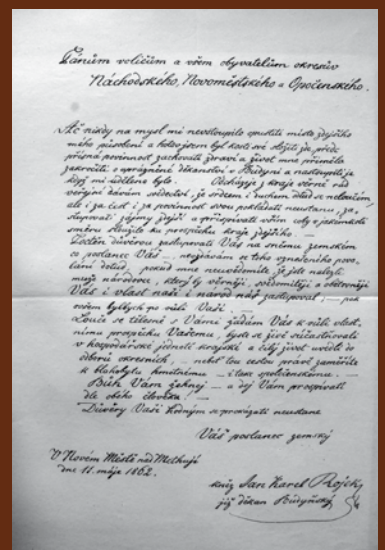 Pánům voličům a všem obyvatelům okresův
Náchodského, Novoměstského a Opočenského.
Ač nikdy na mysl mi nevstoupilo opustiti místo zdejšího
mého působení a kotvo jsem byl kosti své složiti zde, předc
přísná povinnost zachovati zdraví a život mne přiměla
zakročiti o uprázněné děkanství v Budyni a nastoupiti je
když mi uděleno bylo. Obcházeje z kraje věrně rád
veřejně dávám svědectví, že srdcem i duchem
ale i za čest i za povinnost svou pokládati neustanu, za-
stupovati zájmy zdejší a přispívati všem coby v jakémkoli
směru sloužilo ku prospěchu kraje zdejšího.
Poctěn důvěrou zastupovati Vás na sněmu zemském
co poslanec Váš —, neujdávám se toho oznámeného povo-
lání dotud, pokud mne neuvědomíte, že jste nalezli
muže národovce, který by věrněji, svědomitěji a obětavněji
Vás i vlast naši i národ náš zastupoval, —
ovšem bylbych po vůli Vaší. —
Louče se tělesně s Vámi žádám Vás k vůli vlast-
nímu prospěchu Vašemu, byste se živě súčastňovali
v hospodářské jednotě krajské a čilý život uvedli do
odborů okresních, — neboť tou cestou právě zaměříte
k blahobytu hmotnému — i toho společenskému. —
Bůh Vám žehnej — a dej Vám prospívati
dle obého člověka. —
Důvěry Vaší hodným se prokázati neustane
Váš poslanec zemský
V Novém Městě nad Methují
dne 11. máje 1862.
kněz Jan Karel Rojek,
již děkan Budyňský